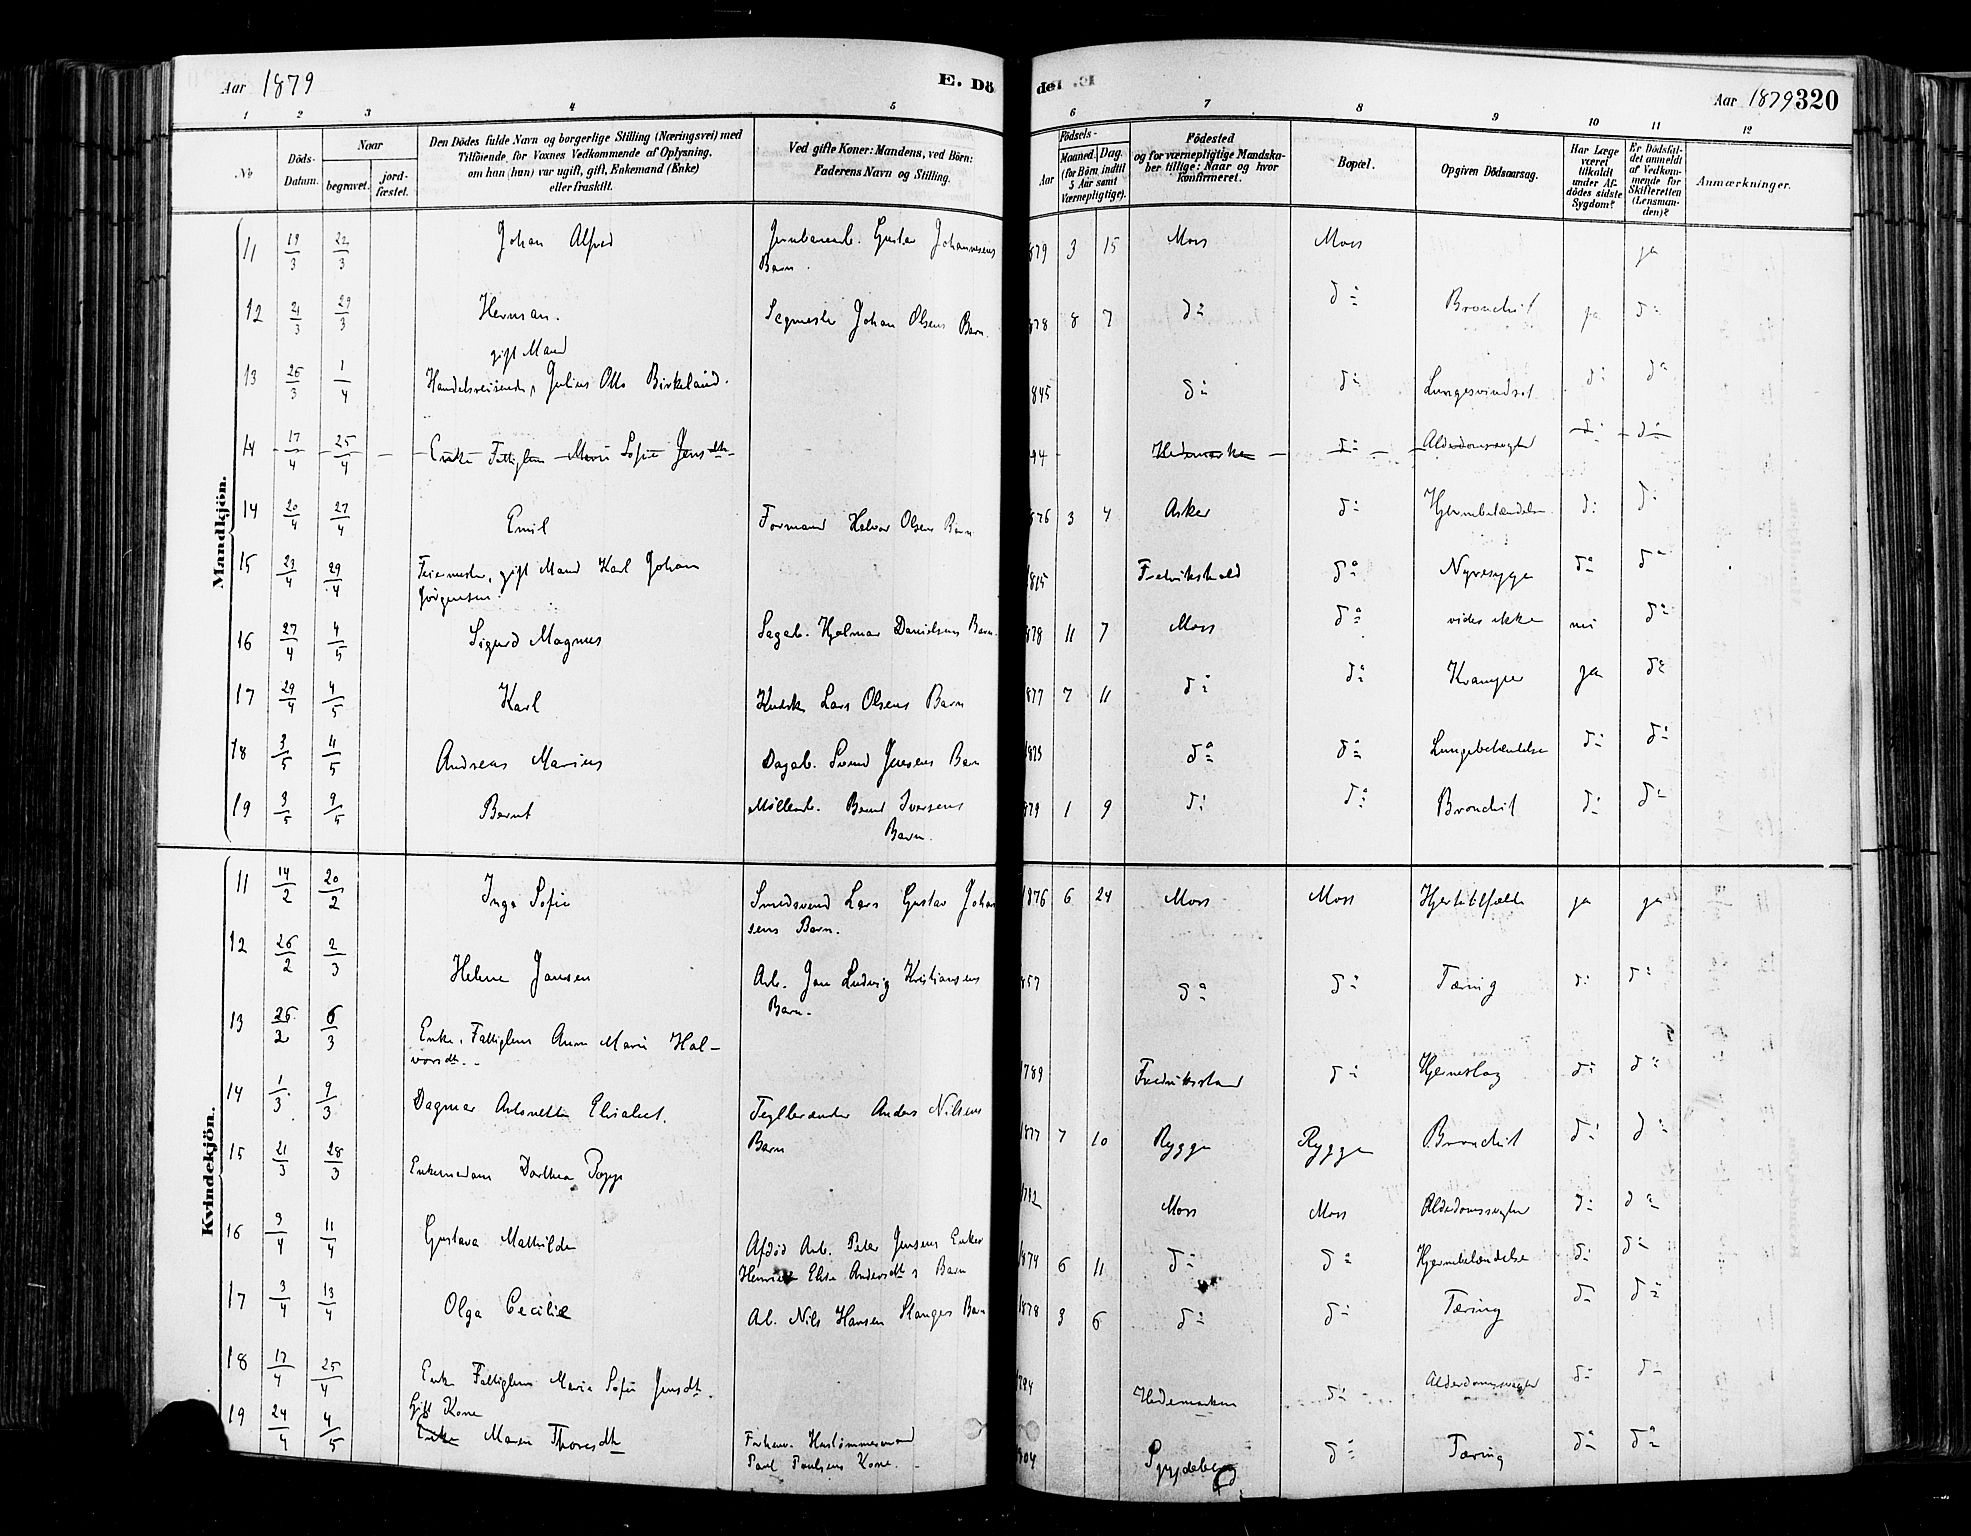 Aar 1879
E. Dö
del
Aar 1879 320
1 2 3 4 5 6 7 8 9 10 11 12
No
Döds-Datum.
Naar
begravet.
jord-fæstet.
Den Dödes fulde Navn og borgerlige Stilling (Næringsvei) med
Tilföiende for Voxnes Vedkommende af Oplysning,
om han (hun) var ugift, gift, Enkemand (Enke)
eller fraskilt.
Ved gifte Koner: Mandens, ved Börn:
Faderens Navn og Stilling.
Födsels-
Aar
Maaned. Dag.
(for Börn indtil
5 Aar samt
Værnepligtige).
Födested
og for værnepligtige Mandska-
ber tillige: Naar og hvor
konfirmeret.
Bopæl.
Opgiven Dödsaarsag.
Har Læge
været
tilkaldt
under Af-
dödes sidste
Sygdom?
Er Dödsfal-
det anmeldt
af Vedkom-
mende for
Skifteretten
(Lensman-
den)?
Anmærkninger.
Mandkjön.
11 19/3 22/3 Johan Alfred Jernbanearb. Gustav Johannesens
Barn. 879 3 15 Moss Moss ja
12 21/3 29/3 Herman. Sagmester Johan Olsens Barn 878 8 7 do do Bronchit ja do
gift Mand
13 26/3 1/4 Handelsreisende Julius Otto Birkeland. 845 do do Lungesvindsot do do
14 17/4 25/4 Enke Fattiglem Marie Sofie Jensdtr 94 Hedemarken do Alderdomssvaghed do do
14 20/4 27/4 Emil Formand Halvor Olsens Barn 876 3 4 Asker do Hjernebetændelse do do
15 23/4 29/4 Feiermester, gift Mand Karl Johan
Jörgensen 1815 Fredrikshald do Nyresyge do do
16 27/4 4/5 Sigurd Magnus Sagarb. Hjalmar Danielsens Barn. 878 11 7 Moss do vides ikke nei do
17 29/4 4/5 Karl Lars Olsens Barn 877 7 11 do do Kramper ja do
18 3/5 11/5 Andreas Marius Dagarb. Svend Jensens Barn 1875 do do Lungebetændelse do do
19 3/5 9/5 Bernt Möllerarb. Bernt Iversens
Barn. 879 1 9 do do Bronchit do do
Kvindekjön.
11 14/2 20/2 Inga Sofie Smedsvend Lars Gustav Johan
sens Barn. 1876 6 24 Moss Moss Hjertetilfælde ja ja
12 26/2 2/3 Helene Jansen Arb. Jan Ludvig Kristiansens
Barn. 857 do do Tæring do do
13 26/2 6/3 Enke, Fattiglem Anne Marie Hal-
vorsdtr. 1789 Fredriksstad do Hjerneslag do do
14 1/3 9/3 Dagmar Antonette Elisabet. Teglbrænder Anders Nilsens
Barn 1877 7 10 Rygge Rygge Bronchit do do
15 21/3 28/3 Enkemadam Dorthea Popp 1792 Moss Moss Alderdomssvaghed do do
16 9/4 11/4 Gustava Mathilde Afdöd Arb. Peter Jensens Enke
Henriette Elise Andersdtrs Barn 1874 6 11 do do Hjernebetændelse do do
17 3/4 13/4 Olga Cecilie Arb. Nils Hansen Stanges Barn 1878 3 6 do do Tæring do do
18 17/4 25/4 Enke Fattiglem Marie Sofie Jensdtr. 1794 Hedemarken do Alderdomssvaghed do do
Gift Kone
19 24/4 4/5 Enke Maren Thoresdtr Forhenv.
Paul Paulsens Kone. 804 Spydeberg do Tæring do do